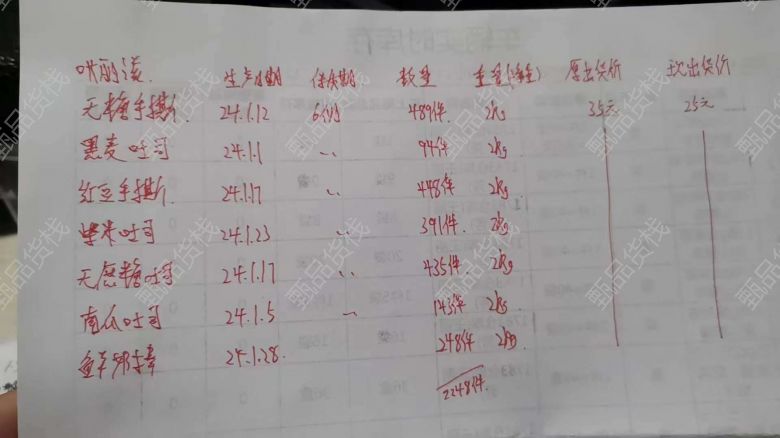 生产日期 保质期 数量 重量(净重) 原出货价 现出货价
无糖手撕 24.1.12 6个月 489件. 2kg 35元 25元
黑麦吐司 24.1.1 〃 94件 2kg
红豆手撕 24.1.17 〃 448件 2kg
紫米吐司 24.1.23 〃 391件. 2kg
无蔗糖吐司 24.1.17 〃 435件. 2kg
南瓜吐司 24.1.5 〃 143件 2kg
24.1.28. 248件 2kg
2248件.
甄品货栈